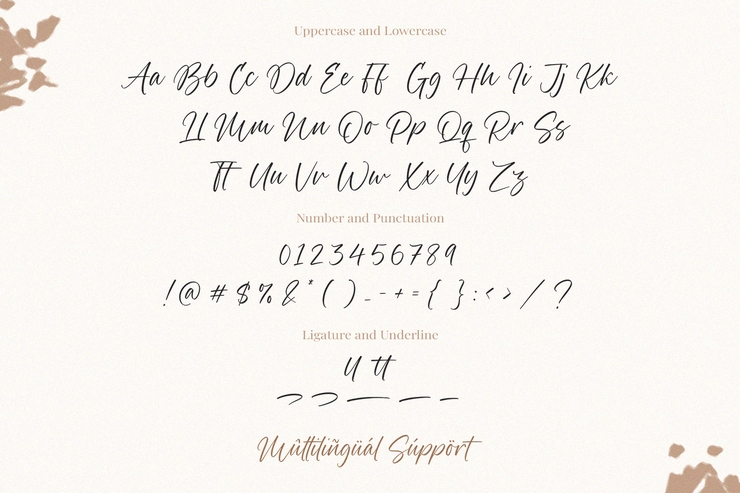 Uppercase and Lowercase
Aa Bb Cc Dd Ee Ff Gg Hh Ii Jj Kk
Ll Mm Nn Oo Pp Qq Rr Ss
Tt Uu Vv Ww Xx Yy Zz
Number and Punctuation
0123456789
!@#$%&*()_-+={}:<>/?
Ligature and Underline
ll tt
Mûltilïñgüál Súppört